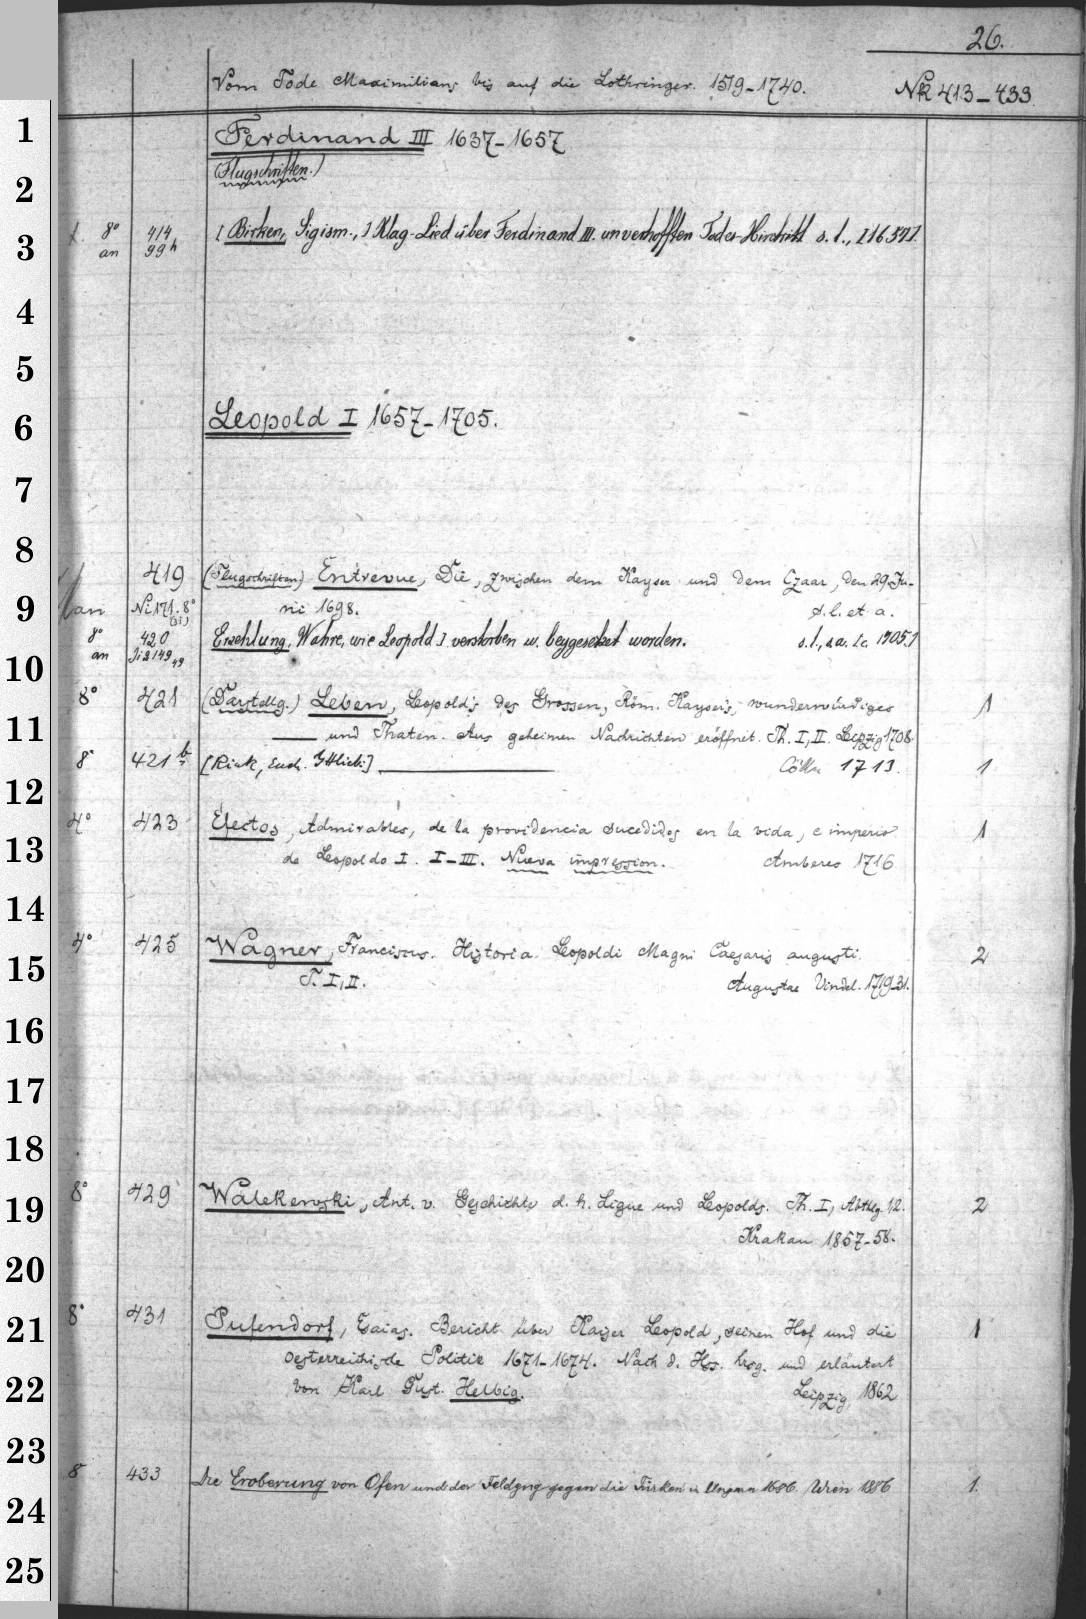 26.
Vom Tode Maximilians bis auf die Lothringer. 1519-1740. Nk 413-433
1
Ferdinand III 1637-1657
(Flugschriften.)
2
8° 414 [Birken, Sigism.,] Klag-Lied über Ferdinand III. unverhofften Todes-Hintritt s. l., [1657].
3
an 99h
4
5
Leopold I 1657-1705.
6
7
8
419 (Flugschriften) Entrevue, Die, zwischen dem Kayser und dem Czaar, den 29. Ju-
9
an Ni 171. 8° nii 1698. s. l. et a.
8° 420 Erzehlung, Wahre, wie Leopold I verstorben u. beygesetzet worden. s. l., s. a. [c. 1705.]
an 49
10
8° 421 (Darstellg.) Leben, Leopold's des Grossen, Röm. Kaysers, wunderwürdiges 1
11
—— und Thaten. Aus geheimen Nachrichten eröffnet. Th. I, II. Leipzig 1708.
8° 421b [Rink, Euch. Gttlieb:] —— Cölln 1713. 1
12
4° 423 Efectos, Admirables, de la providencia sucedidos en la vida, e imperio 1
13
de Leopoldo I. I-III. Nueva impression. Amberes 1716
14
4° 425 Wagner, Franciscus. Historia Leopoldi Magni Caesaris augusti. 2
15
T. I, II. Augustae Vindel. 1719-31.
16
17
18
8° 429 Walekerski, Ant. v. Geschichte d. h. Ligue und Leopolds. Th. I, Abthlg. 1,2. 2
19
Krakau 1857-58.
20
8° 431 Pufendorf, Esaias. Bericht über Kaiser Leopold, seinen Hof und die 1
21
oesterreichische Politik 1671-1674. Nach d. Hss. hrsg. und erläutert
22
von Karl Gust. Helbig. Leipzig, 1862
23
8° 433 Die Eroberung von Ofen und der Feldzug gegen die Türken in Ungarn 1686. Wien 1886 1.
24
25